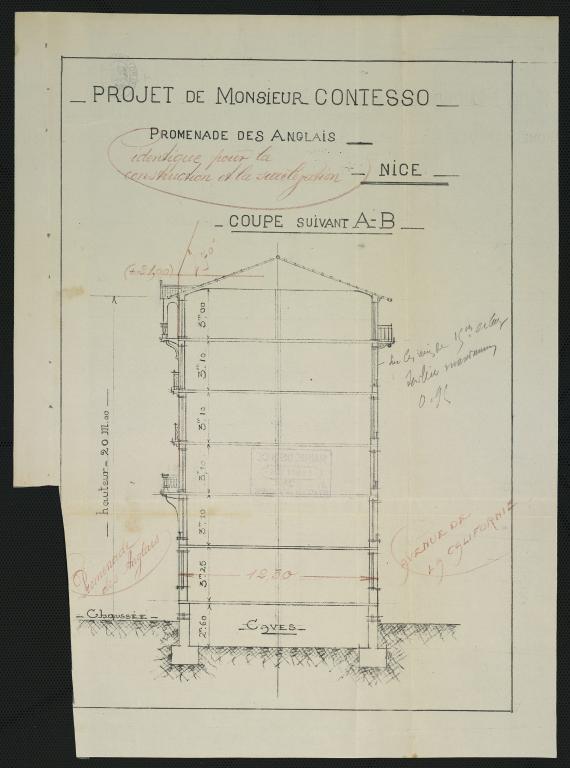 PROJET DE MONSIEUR CONTESSO
PROMENADE DES ANGLAIS
identique pour la
construction et la surélévation
NICE
COUPE SUIVANT A-B
(+21,00)
3m00
3m.10
3m.10
3m.10
3m.10
3m25
2m.60
hauteur = 20 m.00
0.95
Promenade
des Anglais
AVENUE DE
LA CALIFORNIE
12,50
CHAUSSÉE
CAVES